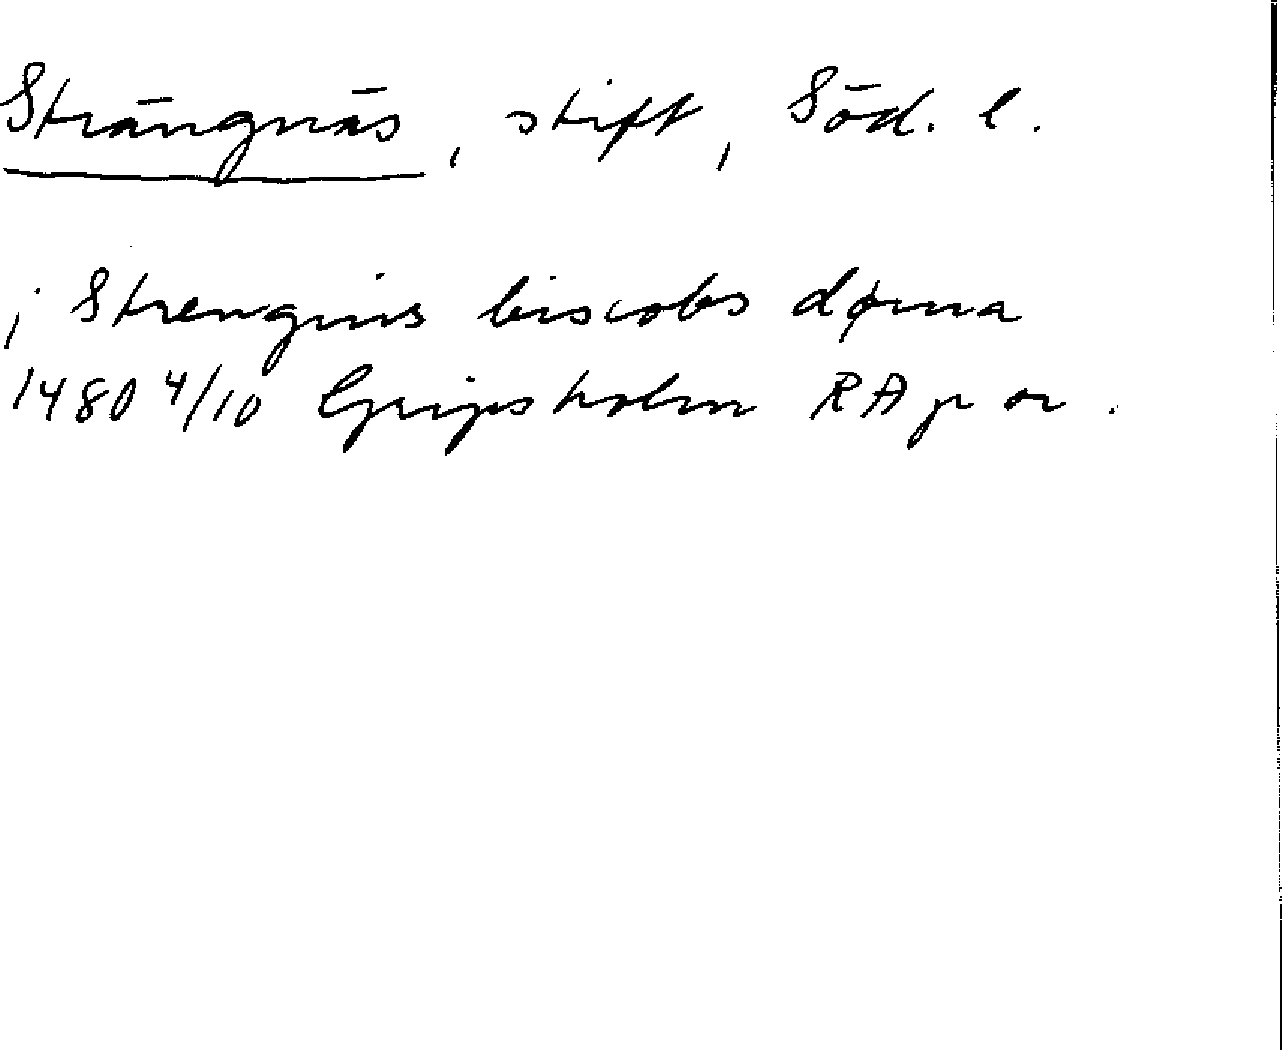 Strängnäs, stift, Söd. l.
j Strengins biscobs døma
1480 4/10 Gripsholm RA p or.